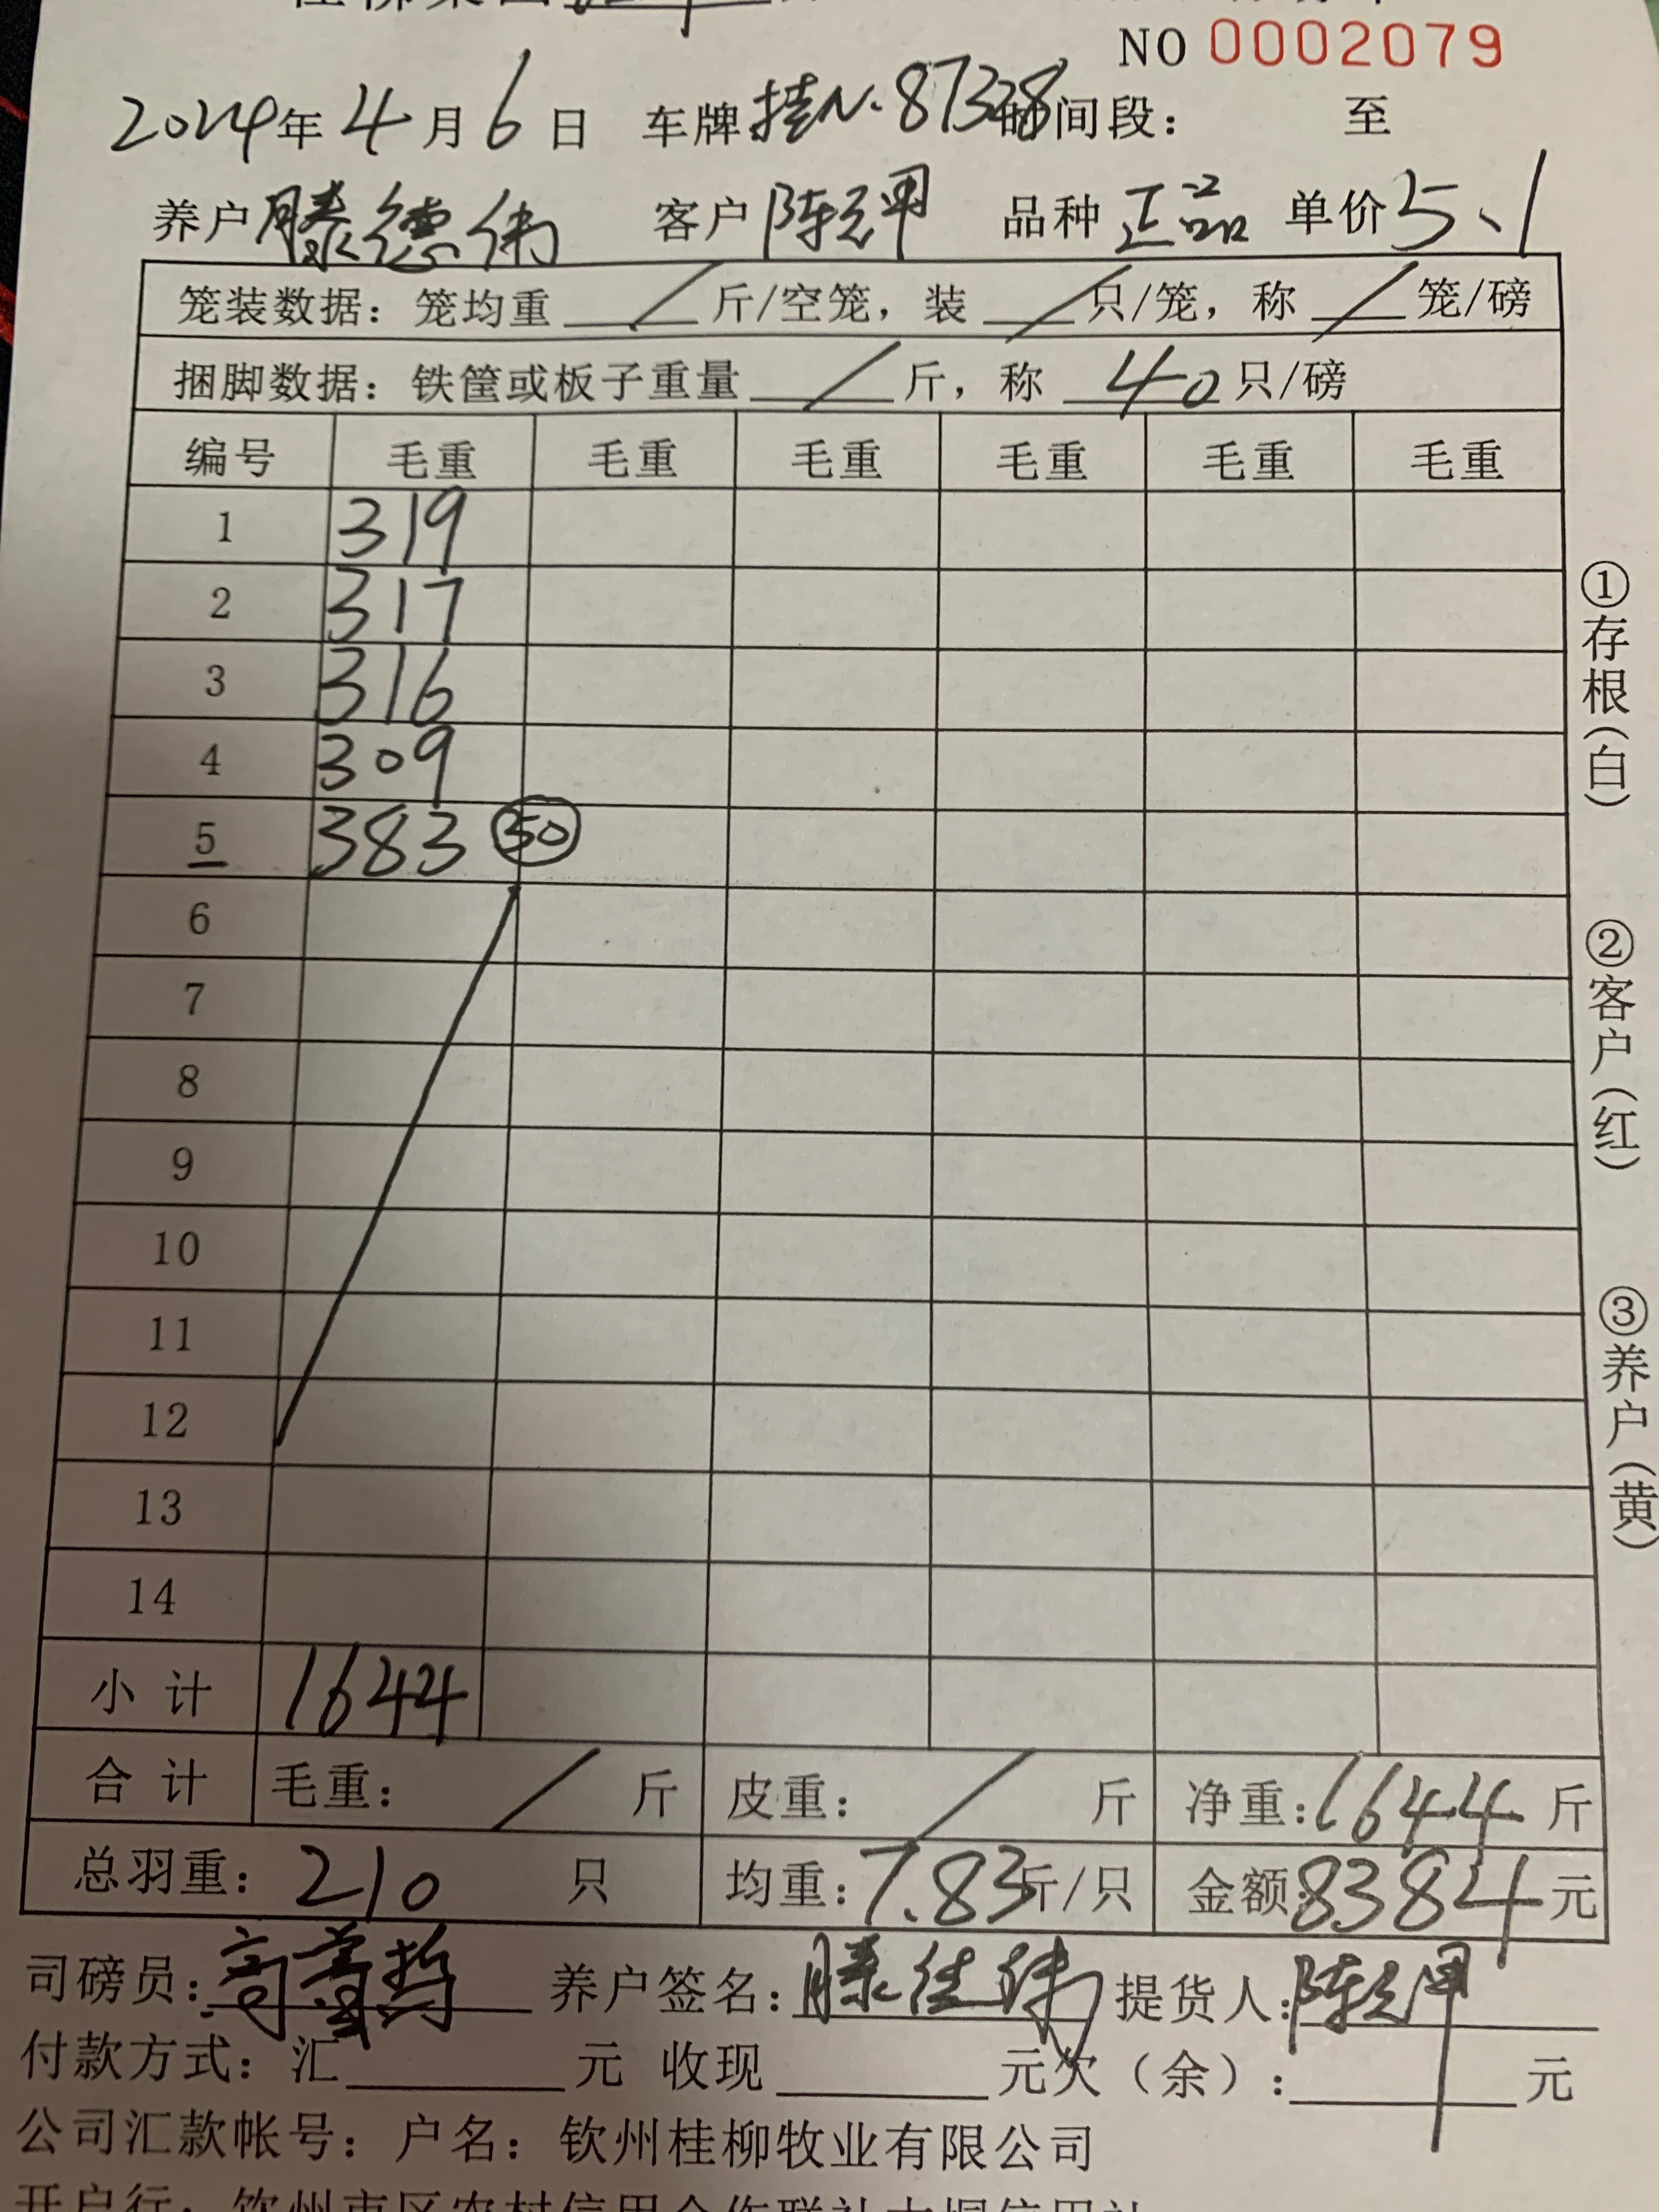 NO 0002079
2024年4月6日 车牌桂N·87328时间段： 至
养户滕德伟 客户陈元甲 品种正品 单价5.1
笼装数据：笼均重 / 斤/空笼，装 / 只/笼，称 / 笼/磅
捆脚数据：铁筐或板子重量 / 斤，称 40 只/磅
编号 毛重 毛重 毛重 毛重 毛重 毛重
1 319
2 317
3 316
4 309
5 383 50
6
7
8
9
10
11
12
13
14
小计 1644
合计 毛重： / 斤 皮重： / 斤 净重：1644 斤
总羽重：210 只 均重：7.83斤/只 金额：8384元
司磅员： 养户签名： 提货人：
付款方式：汇 元 收现 元欠（余）： 元
公司汇款帐号：户名：钦州桂柳牧业有限公司
①存根（白）
②客户（红）
③养户（黄）